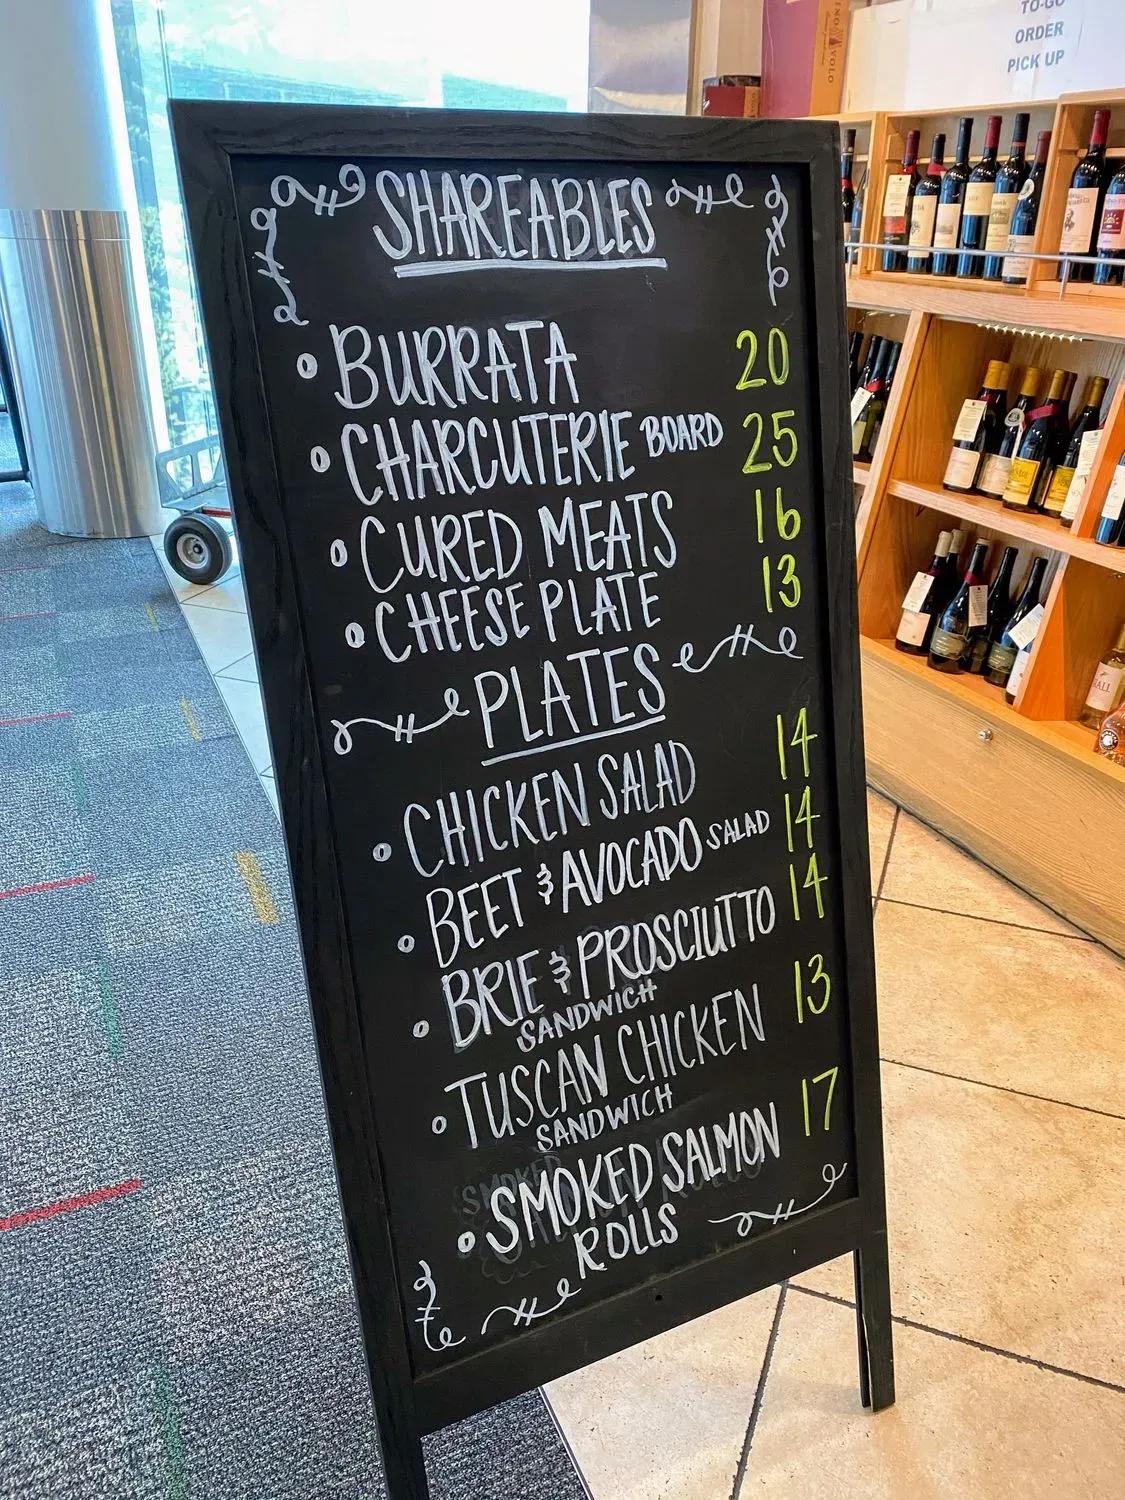 TO-GO
ORDER
PICK UP
VINO VOLO
SHAREABLES
BURRATA 20
CHARCUTERIE BOARD 25
CURED MEATS 16
CHEESE PLATE 13
PLATES
CHICKEN SALAD 14
BEET & AVOCADO SALAD 14
BRIE & PROSCIUTTO 14
SANDWICH
TUSCAN CHICKEN 13
SANDWICH
SMOKED SALMON 17
ROLLS